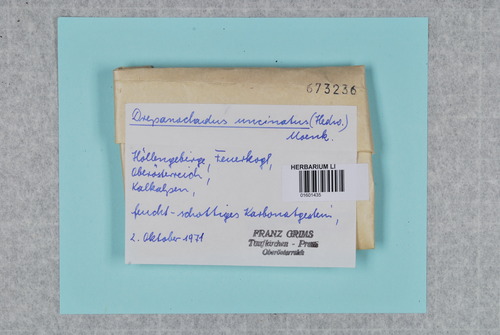 673236
Drepanocladus uncinatus (Hedw.)
Warnst.
Höllengebirge, Feuerkogl,
Oberösterreich,
Kalkalpen,
HERBARIUM LI
feucht-schattiges Karbonatgestein,
2. Oktober 1971
FRANZ GRIMS
Taufkirchen - Pram
Oberösterreich